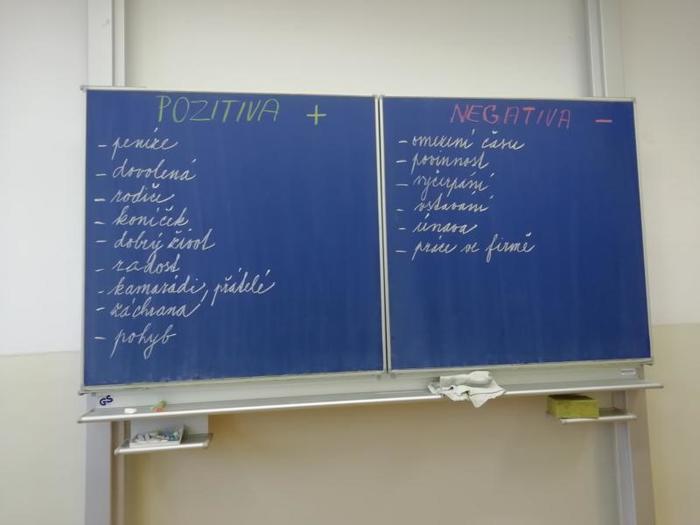 POZITIVA +
- peníze
- dovolená
- rodiče
- koníček
- dobrý život
- radost
- kamarádi, přátelé
- záchrana
- pohyb
NEGATIVA -
- omezení času
- povinnost
- vyčerpání
- vstávání
- únava
- práce ve firmě
GS